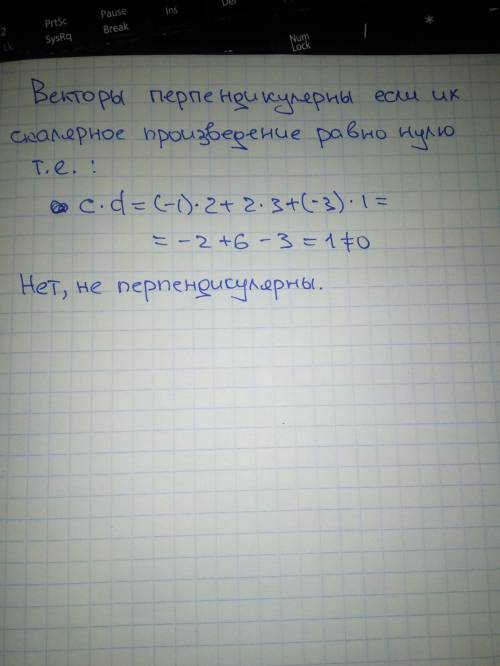 PrtSc
SysRq
Pause
Break
Ins
Del
Num
Lock
*
Векторы перпендикулерны если их
скалярное произведение равно нулю
т.е. :
c·d = (-1)·2 + 2·3 + (-3)·1 =
= -2 + 6 - 3 = 1 ≠ 0
Нет, не перпендисулярны.